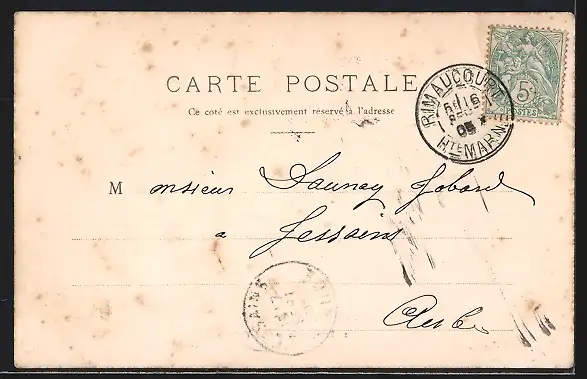 CARTE POSTALE
Ce côté est exclusivement réservé à l'adresse
RIMAUCOURT
16
05
HTE MARNE
5
POSTES
M onsieur Launay Jobard
a Jessains
Aube